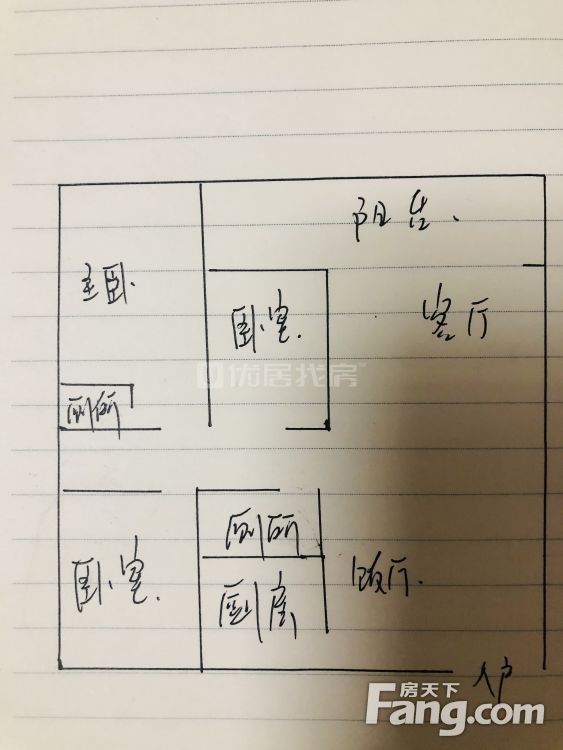 阳台
主卧
卧室
客厅
优居找房
厕所
厕所
卧室
饭厅
入户
房天下
Fang.com